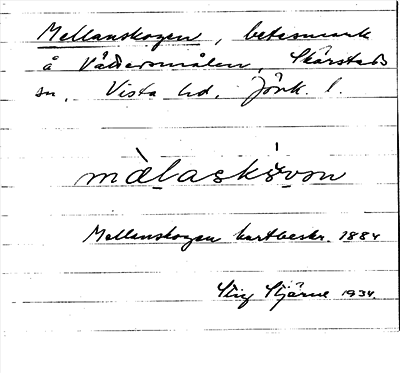 Mellanskogen, betesmark
å Vättersmålen, Skärstads
sn, Vista hd, Jönk. l.
Mellanskogen kartbeskr. 1884
Stig Stjärne 1934.